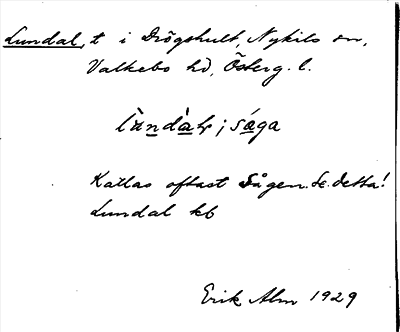 Lundal, t i Drögshult, Nykils sn,
Valkebo hd, Österg. l.
Kallas oftast Sågen. Se detta!
Lundal kb
Erik Alm 1929